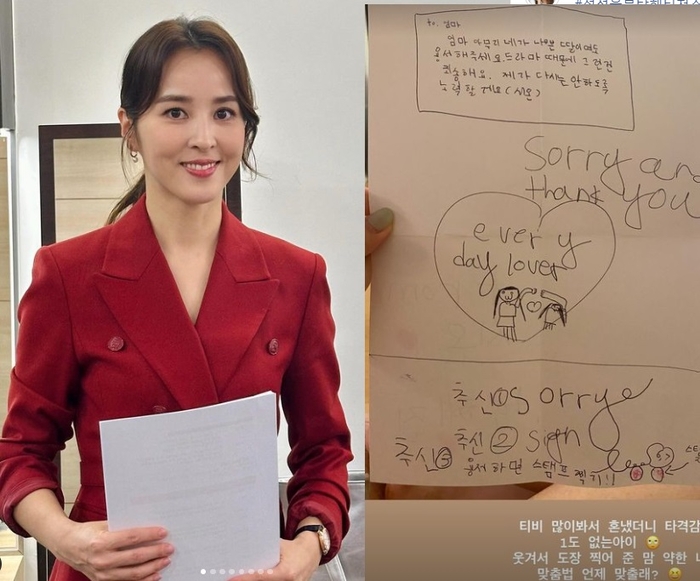 to. 엄마
엄마 아무리 네가 나쁜 딸이여도
용서해주세요 드라마 때문에 그런건
죄송해요. 제가 다시는 안하도록
노력할게요 (시온)
Sorry and
thank you
every
day lover
추신① sorry
추신② sign
추신③ 용서하면 스탬프 찍기!!
티비 많이봐서 혼냈더니 타격감
1도 없는아이
웃겨서 도장 찍어 준 맘 약한
맞춤법 언제 맞출래?